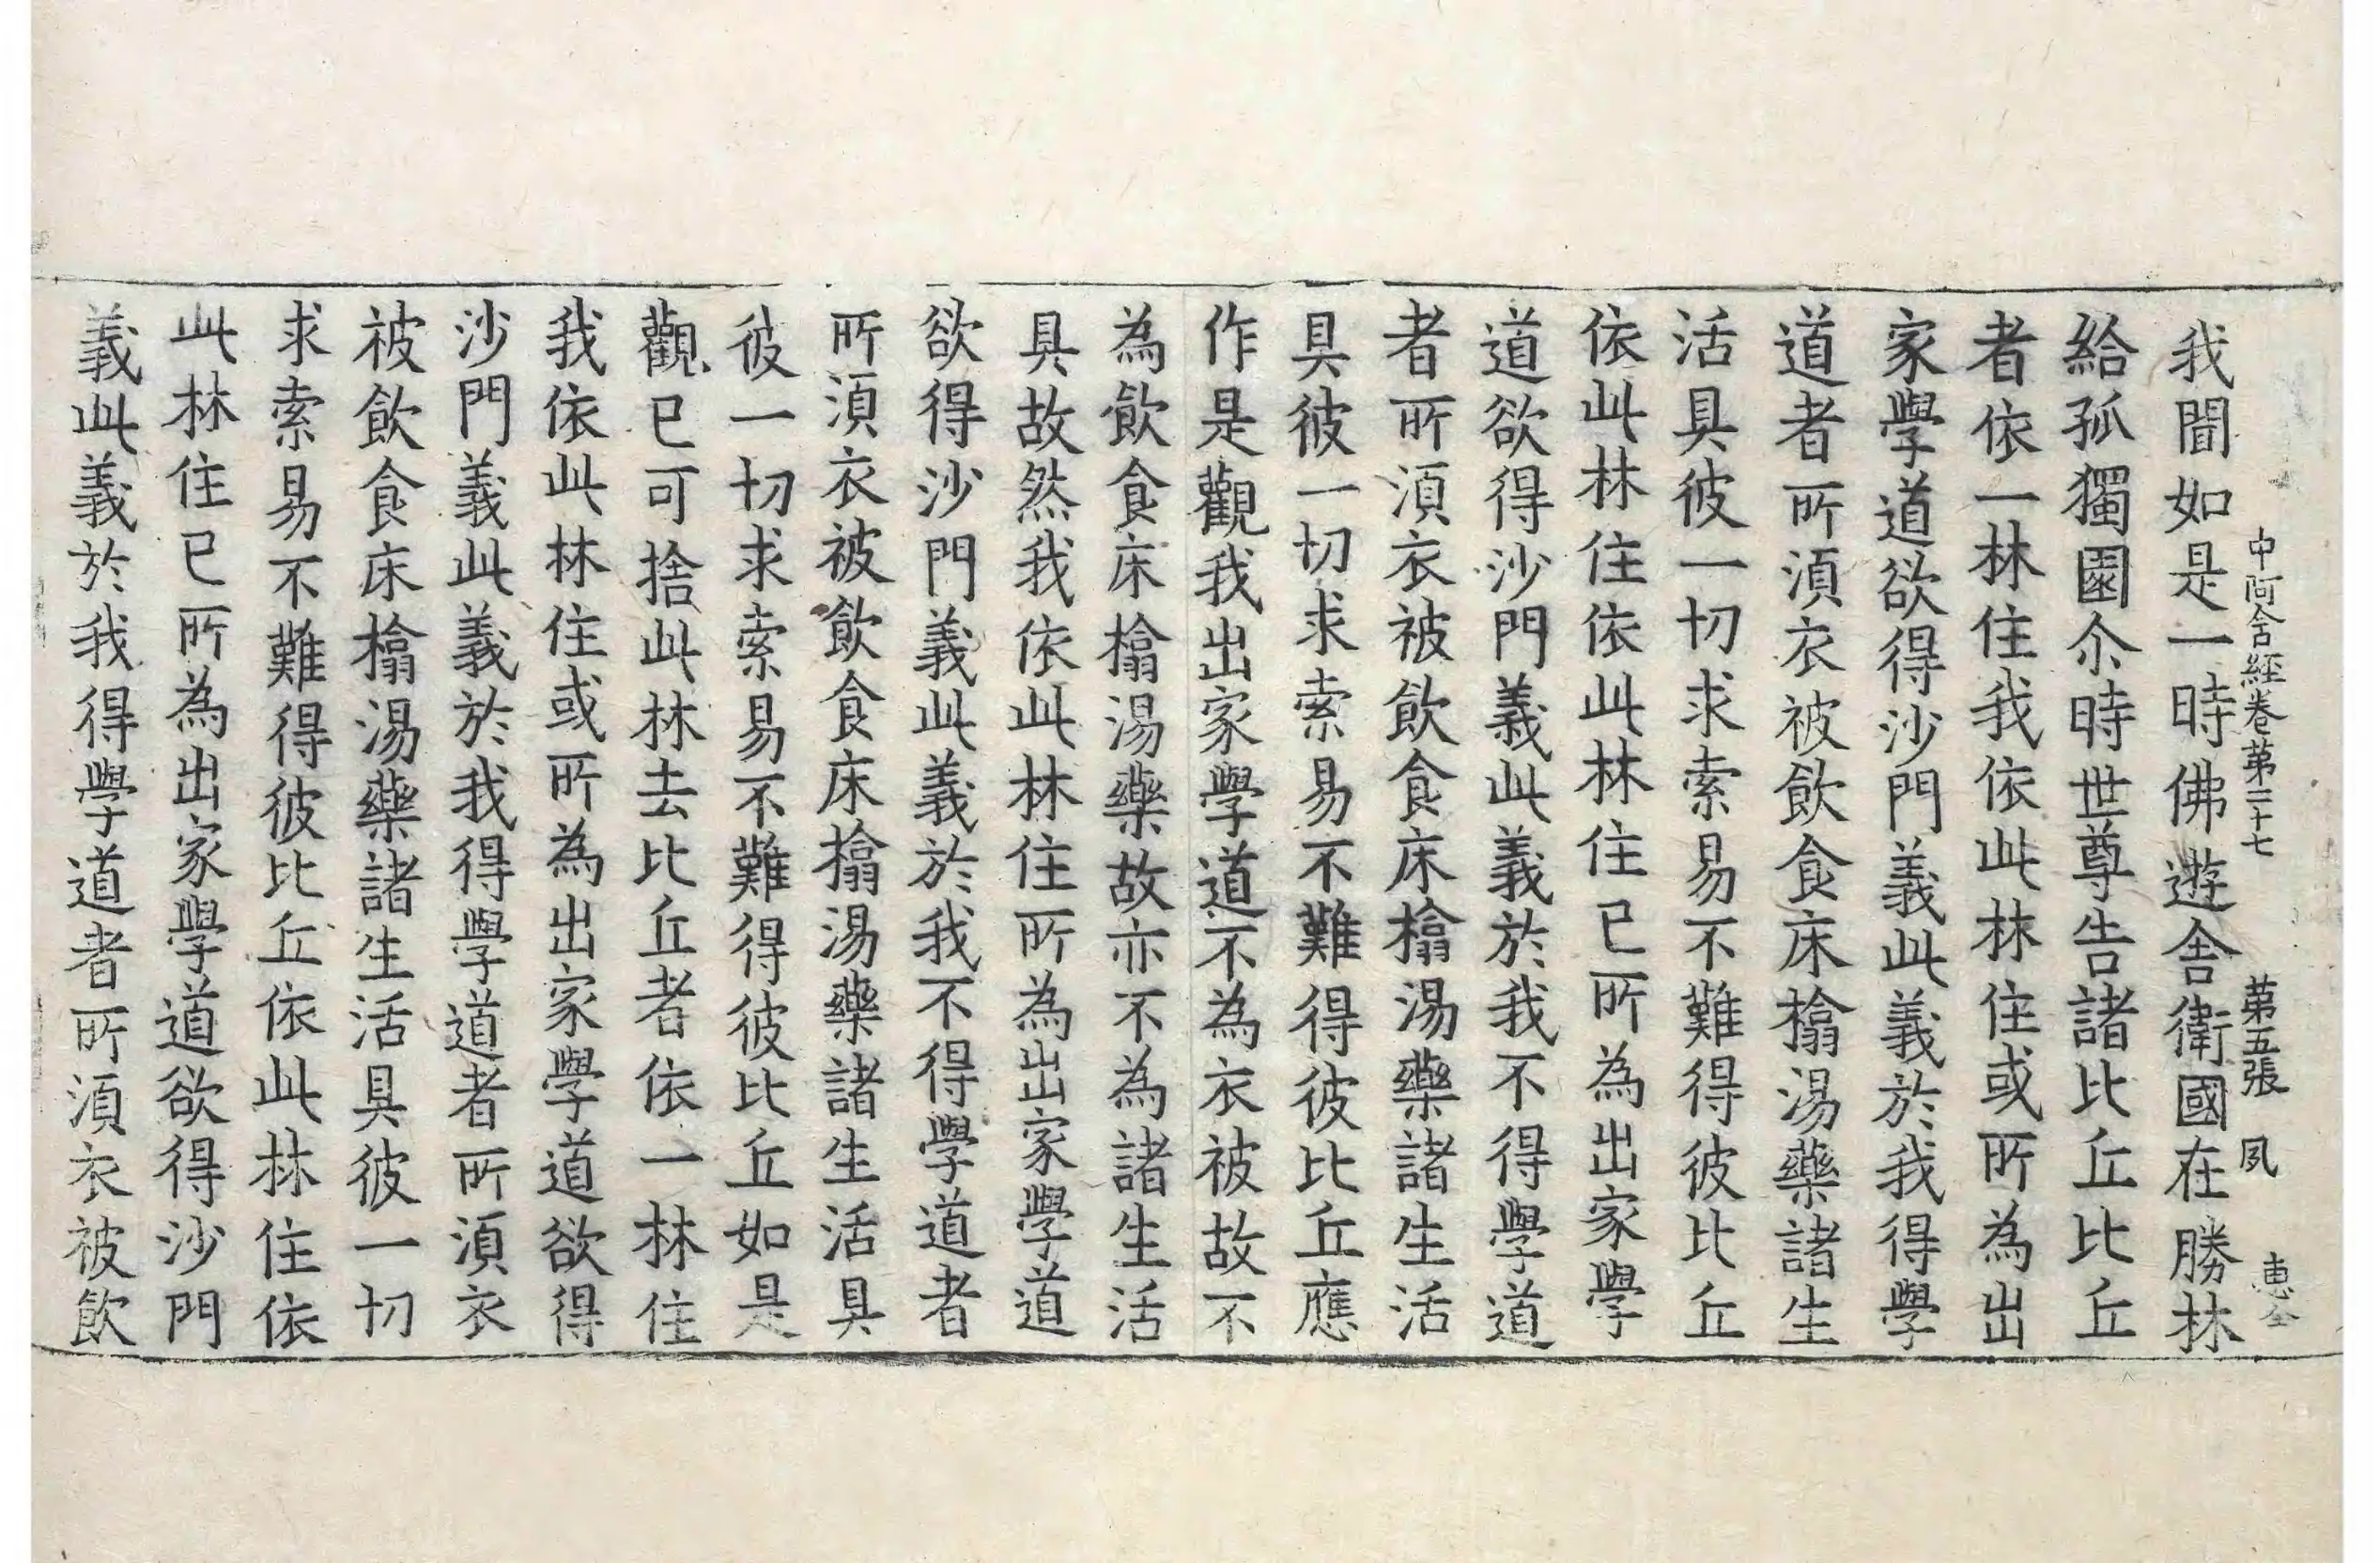 中阿含經卷第二十七 第五張 夙 惠全
我聞如是一時佛遊舍衛國在勝林
給孤獨園尒時世尊告諸比丘比丘
者依一林住我依此林住或所為出
家學道欲得沙門義此義於我得學
道者所湏衣被飲食床榻湯藥諸生
活具彼一切求索易不難得彼比丘
依此林住依此林住已所為出家學
道欲得沙門義此義於我不得學道
者所湏衣被飲食床榻湯藥諸生活
具彼一切求索易不難得彼比丘應
作是觀我出家學道不為衣被故不
為飲食床榻湯藥故亦不為諸生活
具故然我依此林住所為出家學道
欲得沙門義此義於我不得學道者
所湏衣被飲食床榻湯藥諸生活具
彼一切求索易不難得彼比丘如是
觀已可捨此林去比丘者依一林住
我依此林住或所為出家學道欲得
沙門義此義於我得學道者所湏衣
被飲食床榻湯藥諸生活具彼一切
求索易不難得彼比丘依此林住依
此林住已所為出家學道欲得沙門
義此義於我得學道者所湏衣被飲